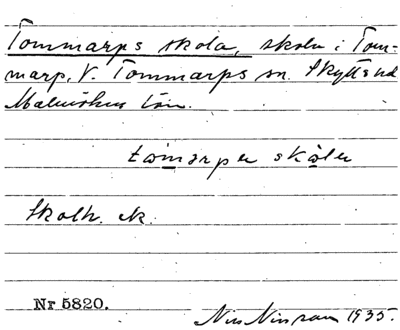 Tommarps skola, skola i Tom-
marp, V. Tommarps sn. Skytts hd
Malmöhus län.
skolh. ek.
Nr 5820.
Nils Nilsson 1935.